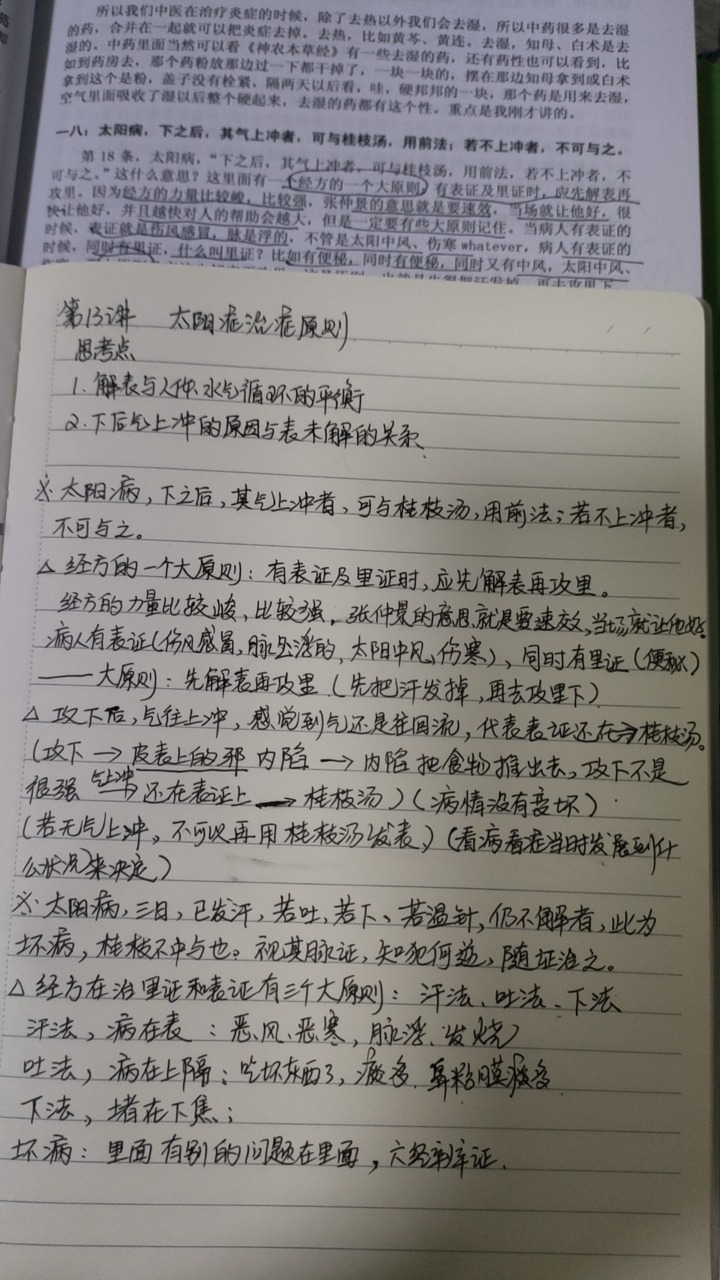 所以我们中医在治疗炎症的时候，除了去热以外我们会去湿，所以中药很多是去湿
的药，合并在一起就可以把炎症去掉。去热，比如黄芩、黄连，去湿，知母、白术是去
湿的。中药里面当然可以看《神农本草经》有一些去湿的药，还有药性也可以看到，比
如到药房去，那个药粉放那边过一下都干掉了，一块一块的，摆在那边知母拿到或白术
拿到这个是粉，盖子没有栓紧，隔两天以后看，哇，硬邦邦的一块，那个药是用来去湿，
空气里面吸收了湿以后整个硬起来，去湿的药都有这个性。重点是我刚才讲的。
一八：太阳病，下之后，其气上冲者，可与桂枝汤，用前法；若不上冲者，不可与之。
第 18 条，太阳病，“下之后，其气上冲者，可与桂枝汤，用前法，若不上冲者，不
可与之。”这什么意思？这里面有一个经方的一个大原则，有表证及里证时，应先解表再
攻里。因为经方的力量比较峻，比较强，张仲景的意思就是要速效，当场就让他好，很
快让他好，并且越快对人的帮助会越大，但是一定要有些大原则记住。当病人有表证的
时候，表证就是伤风感冒，脉是浮的，不管是太阳中风、伤寒 whatever，病人有表证的
时候，同时有里证，什么叫里证？比如有便秘，同时有便秘，同时又有中风，太阳中风、
第13讲 太阳症治症原则
思考点
1. 解表与人体水气循环的平衡
2. 下后气上冲的原因与表未解的关系
※ 太阳病，下之后，其气上冲者，可与桂枝汤，用前法；若不上冲者，
不可与之。
△ 经方的一个大原则：有表证及里证时，应先解表再攻里。
经方的力量比较峻，比较强，张仲景的意思就是要速效，当场就让他好。
病人有表证（伤风感冒，脉是浮的，太阳中风、伤寒），同时有里证（便秘）
——大原则：先解表再攻里（先把汗发掉，再去攻里下）
△ 攻下后，气往上冲，感觉到气还是往回流，代表表证还在→桂枝汤。
（攻下 → 皮表上的邪 内陷 → 内陷 把食物推出去，攻下不是
很强 气上冲→ 还在表证上 → 桂枝汤）（病情没有变坏）
（若无气上冲，不可以再用桂枝汤发表）（看病看症当时发展到什
么状况来决定）
※ 太阳病，三日，已发汗，若吐、若下、若温针，仍不解者，此为
坏病，桂枝不中与也。视其脉证，知犯何逆，随证治之。
△ 经方在治里证和表证有三个大原则：汗法、吐法、下法
汗法，病在表：恶风、恶寒，脉浮、发烧
吐法，病在上隔：吃坏东西了，痰多 鼻粘膜痰多
下法，堵在下焦；
坏病：里面有别的问题在里面，六经辨证.